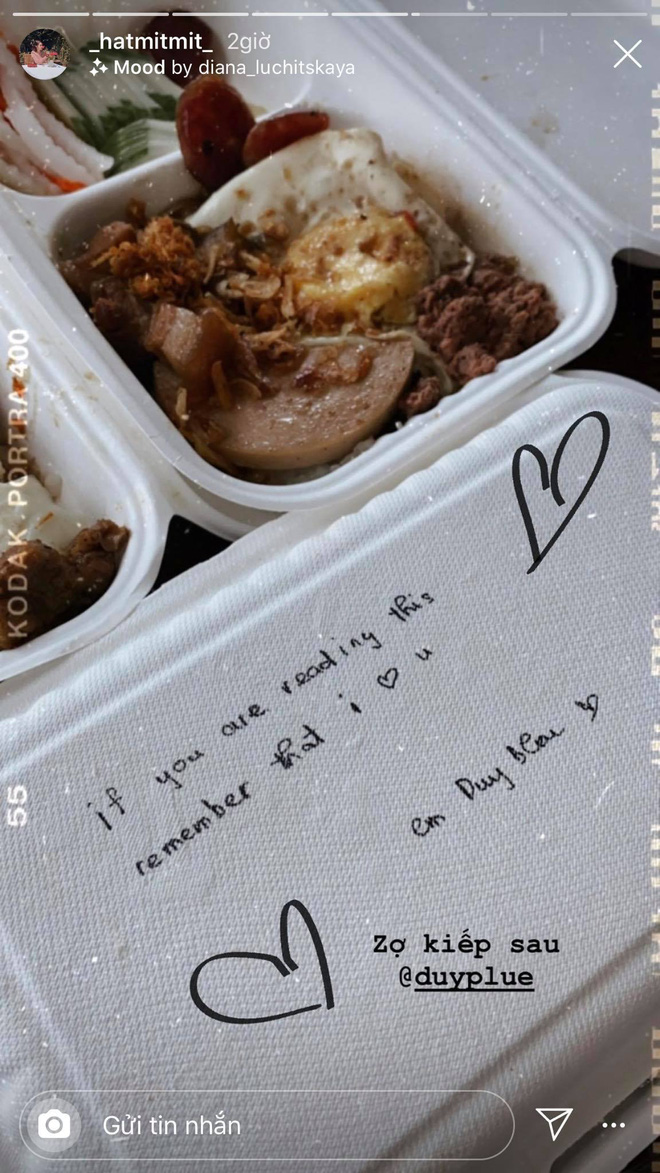 _hatmitmit_ 2giờ
Mood by diana_luchitskaya
KODAK PORTRA 400
55
if you are reading this
remember that i ♡ u
em Duy
Zợ kiếp sau
@duyplue
Gửi tin nhắn